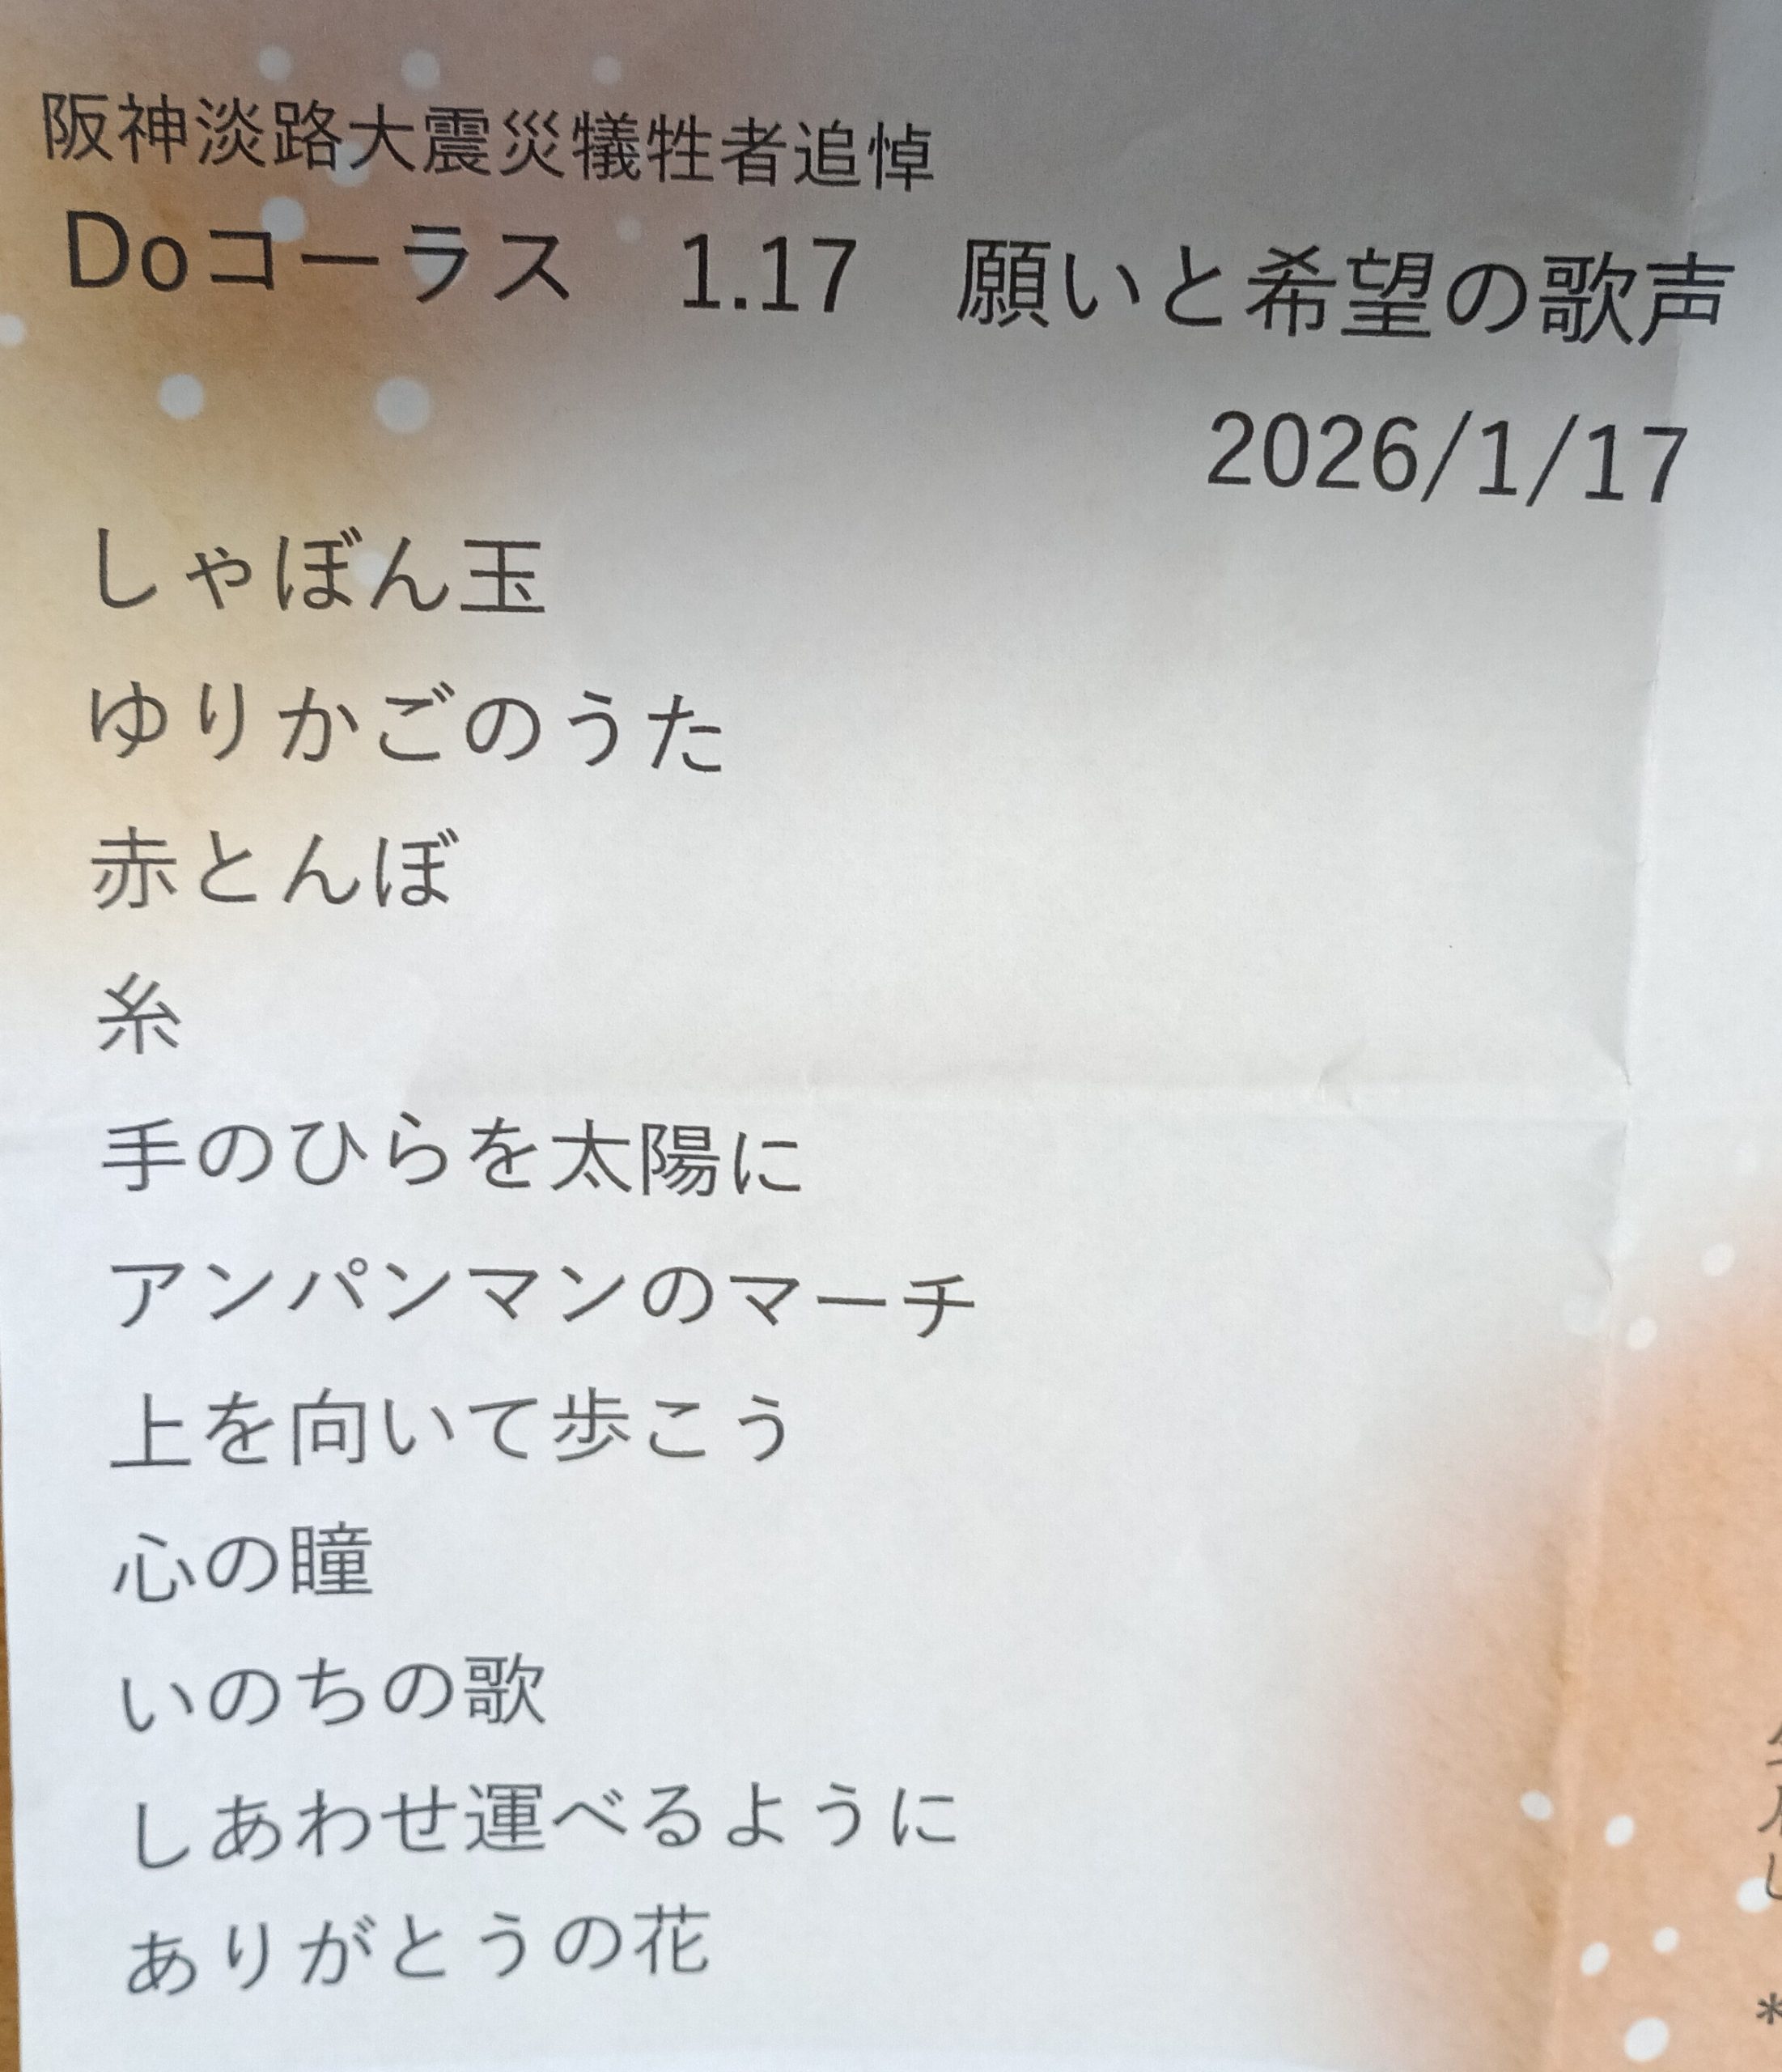 阪神淡路大震災犠牲者追悼
Doコーラス　1.17　願いと希望の歌声
2026/1/17
しゃぼん玉
ゆりかごのうた
赤とんぼ
糸
手のひらを太陽に
アンパンマンのマーチ
上を向いて歩こう
心の瞳
いのちの歌
しあわせ運べるように
ありがとうの花
*